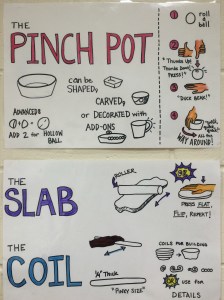 THE
PINCH POT
can be
SHAPED,
CARVED,
or DECORATED WITH
ADD-ONS
ADVANCED:
ADD 2 for HOLLOW
BALL.
1 roll
a
ball
2 "Thumbs Up
Thumbs Down
PRESS!"
3 "DUCK BEAK!"
4
WAY AROUND!
THE
SLAB
ROLLER
PRESS FLAT,
FLIP, REPEAT!
THE
COIL
1/4" Thick
"PINKY SIZE"
COILS FOR BUILDING
USE FOR
DETAILS